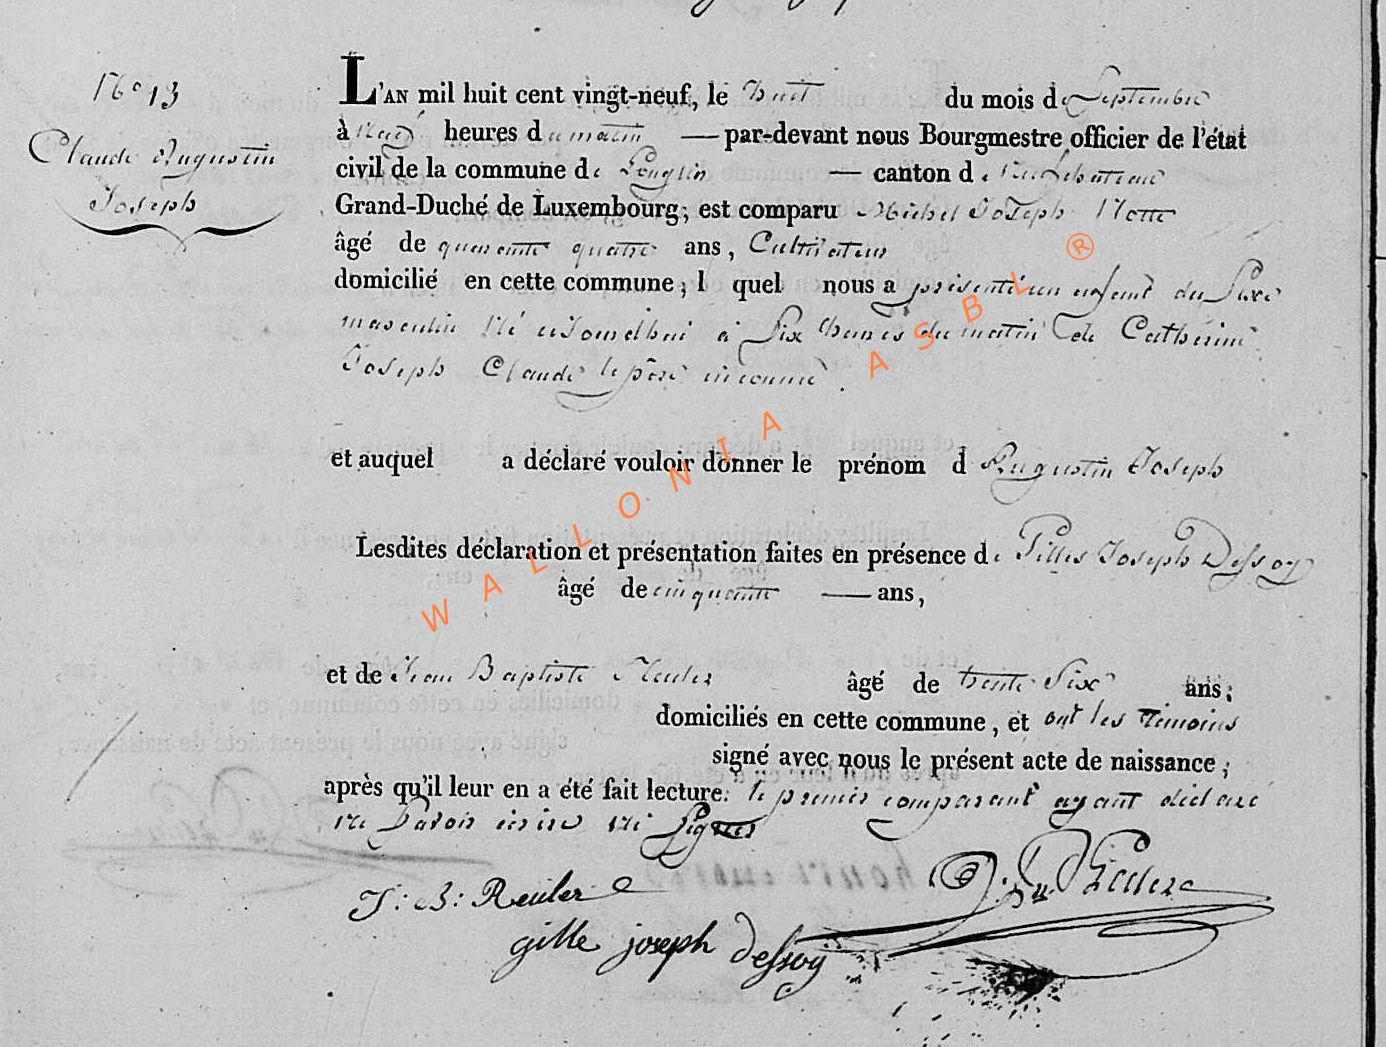 N° 13
Claude Augustin
Joseph
L'AN mil huit cent vingt-neuf, le huit du mois de Septembre
à Neuf heures du matin — par-devant nous Bourgmestre officier de l'état
civil de la commune de Longlier — canton de Neufchateau
Grand-Duché de Luxembourg; est comparu Michel Joseph
âgé de quarante quatre ans, Cultivateur
domicilié en cette commune; l quel nous a présenté un enfant du Sexe
masculin Né aujourdhui à Six heures du matin de Catherine
Joseph Claude le père inconnu.
et auquel a déclaré vouloir donner le prénom d Augustin Joseph
Lesdites déclaration et présentation faites en présence de Gilles Joseph Dessoy
âgé de cinquante — ans,
et de Jean Baptiste Reuler âgé de trente Six ans;
domiciliés en cette commune, et ont les témoins
signé avec nous le présent acte de naissance;
après qu'il leur en a été fait lecture. le premier comparant ayant déclaré
ne Savoir écrire ni Signer
J: B: Reuler
gille joseph dessoy
WALLONIA ASBL ®